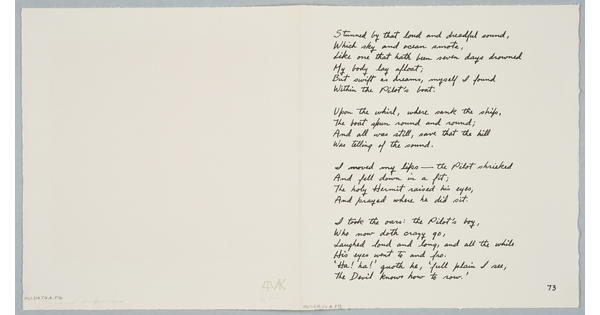 Stunned by that loud and dreadful sound,
Which sky and ocean smote,
Like one that hath been seven days drowned
My body lay afloat;
But swift as dreams, myself I found
Within the Pilot's boat.
Upon the whirl, where sank the ship,
The boat spun round and round;
And all was still, save that the hill
Was telling of the sound.
I moved my lips — the Pilot shrieked
And fell down in a fit;
The holy Hermit raised his eyes,
And prayed where he did sit.
I took the oars: the Pilot's boy,
Who now doth crazy go,
Laughed loud and long, and all the while
His eyes went to and fro.
'Ha! ha!' quoth he, 'full plain I see,
The Devil knows how to row.'
73